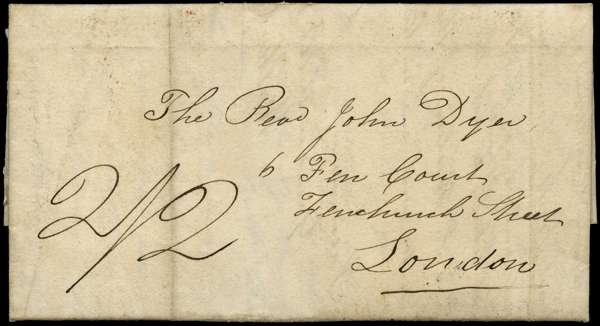 The Revd John Dyer
6 Fen Court
Fenchurch Street
London
2/2